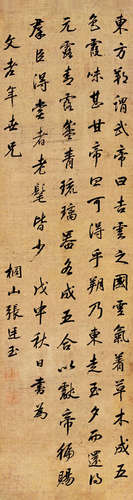 東方朔謂武帝曰吉雲之國雲氣著草木成五
色露味甚甘帝曰可得乎朔乃東走至夕而還得
元露青露盛青琉璃器各成五合以獻帝徧賜
羣臣得嘗者老髦皆少 戊申秋日書為
文老年世兄
桐山張廷玉